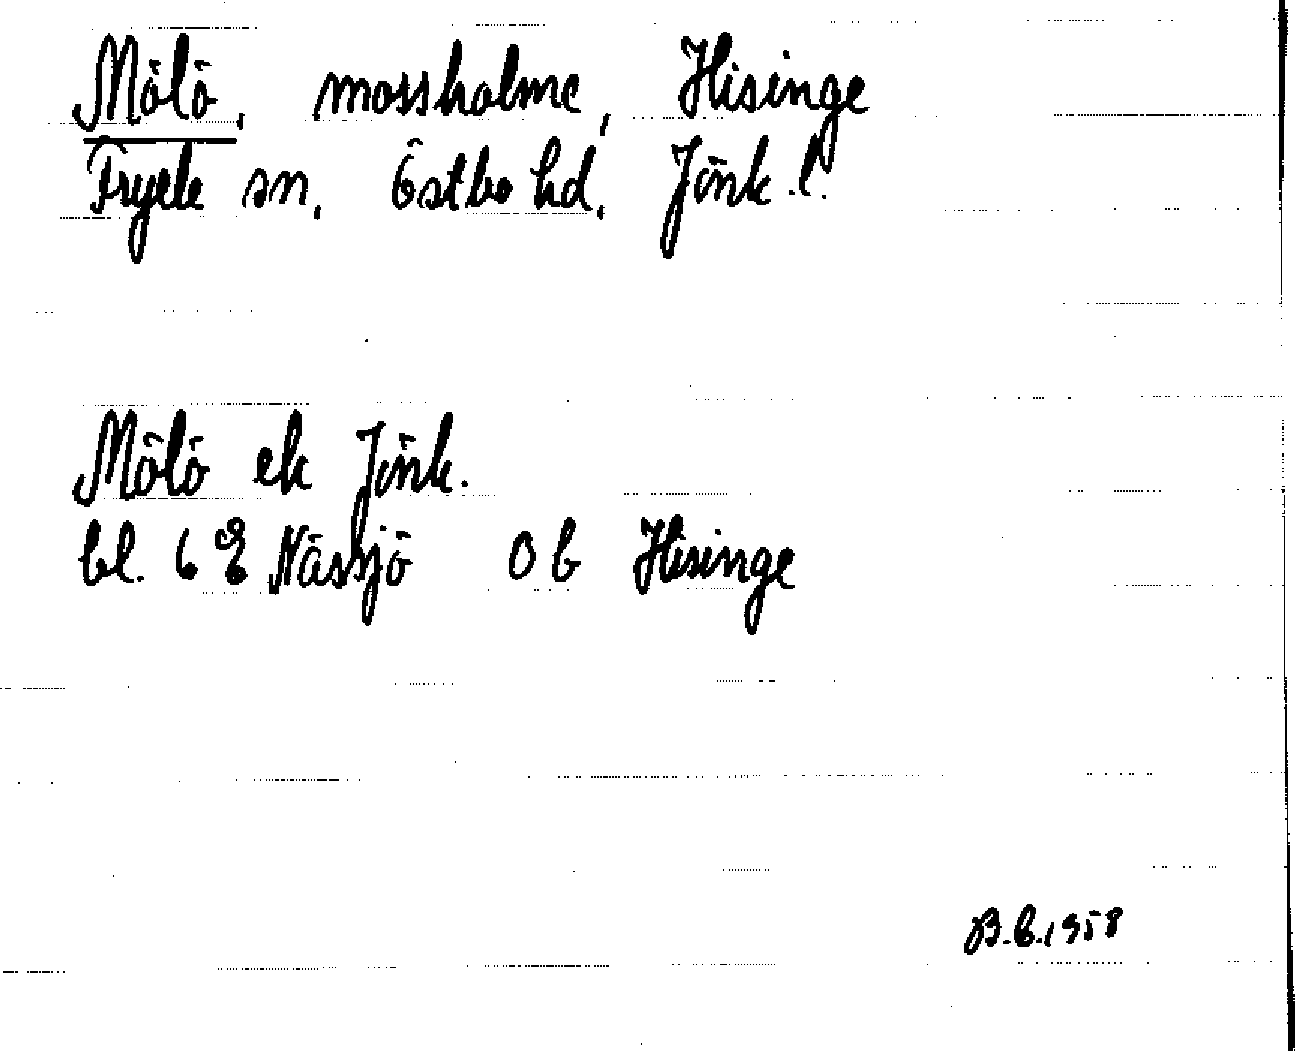 Mölö, mossholme, Hisinge
Fryele sn, Östbo hd, Jönk. l.
Mölö ek Jönk.
bl. 6 E Nässjö 0 b Hisinge
B.E. 1958